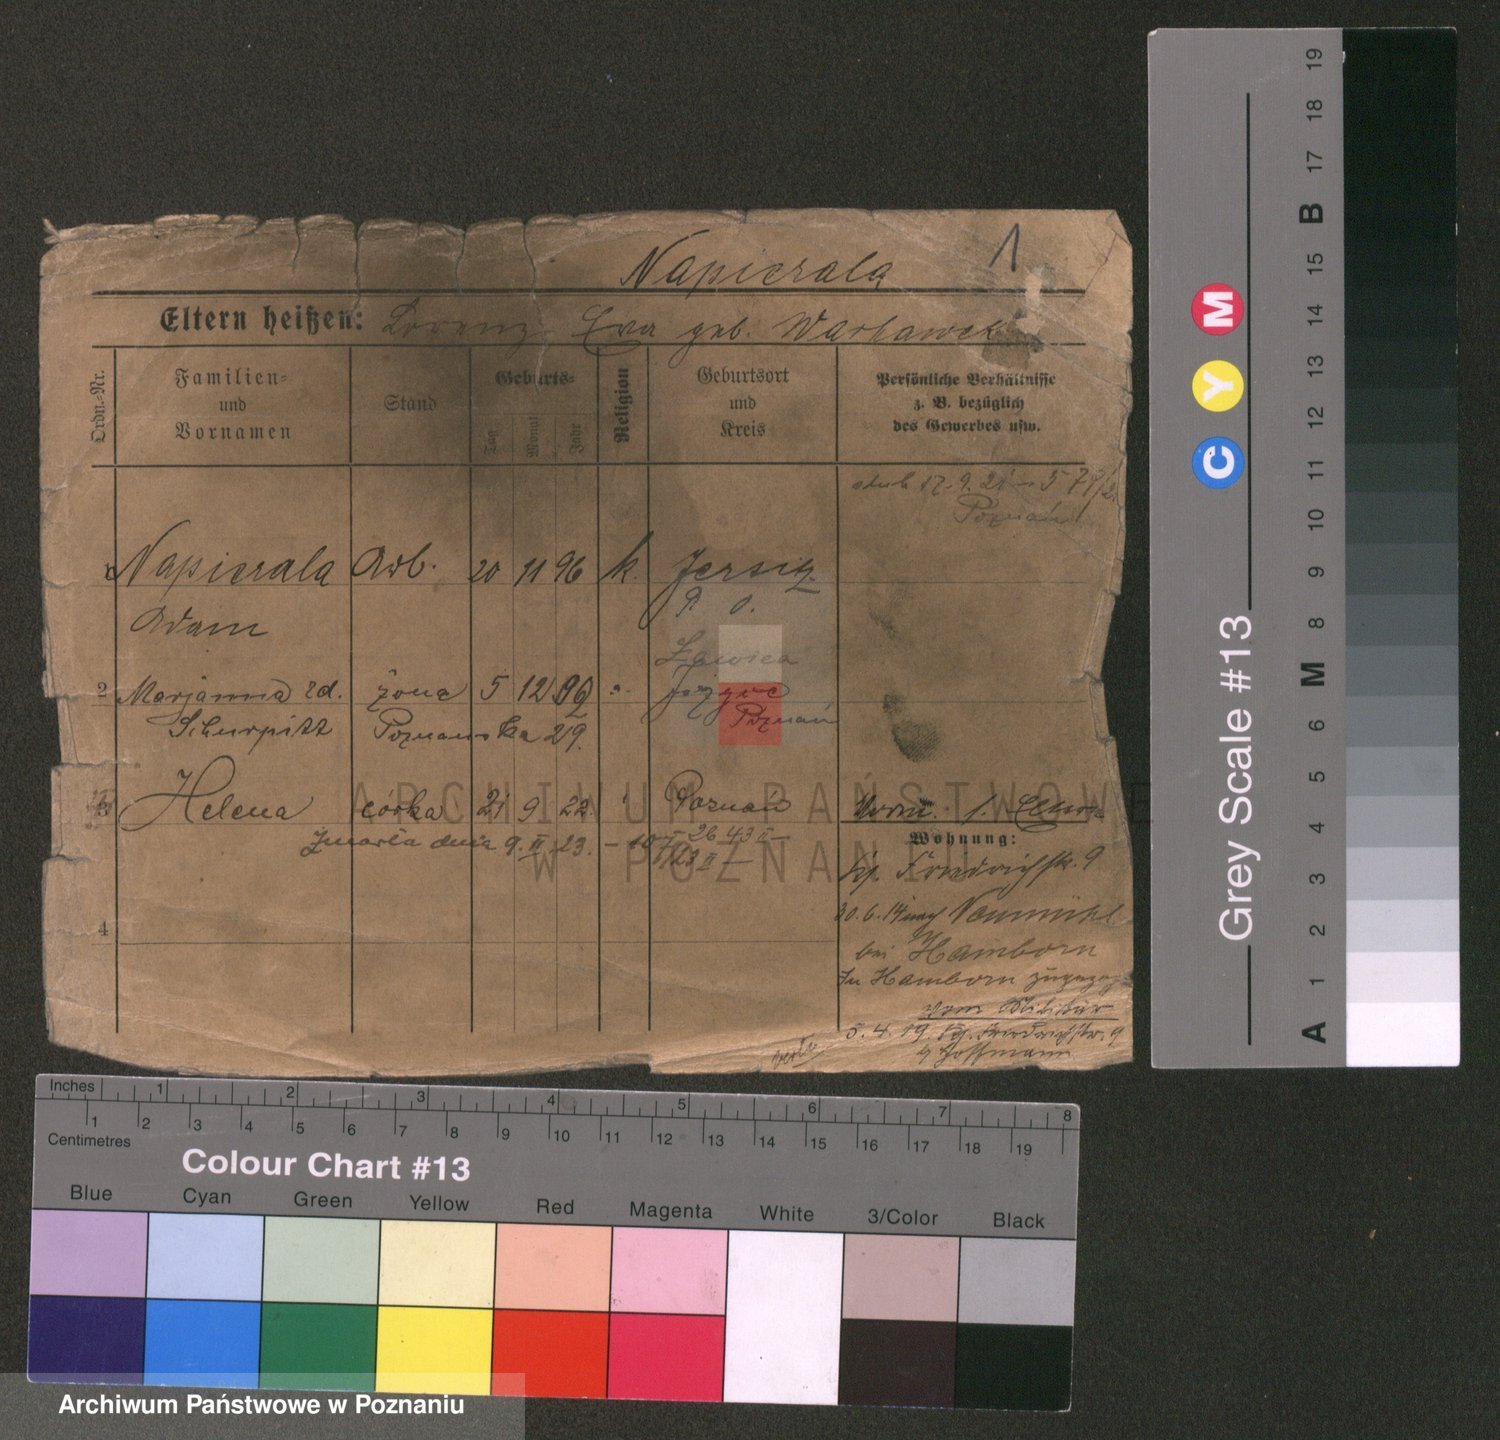 Napierala 1
Eltern heißen: Lorenz Eva geb. Warkawek
Ordn.-Nr.
Familien-
und
Vornamen
Stand
Geburts-
Tag
Monat
Jahr
Religion
Geburtsort
und
Kreis
Persönliche Verhältnisse
z. B. bezüglich
des Gewerbes usw.
ślub 17. 9. 21
Poznań
Napierala Arb. 20 11 96 k. Jersitz
Adam P. O.
Ławica
2 Marjanna zd. żona 5 12
Poznań
Poznańska 29.
3 Helena córka 21 9 22. Poznań
Zmarła dnia 9. II 23.
Wohnung:
Friedrichstr. 9
30. 6. 14 nach Neumühl
bei Hamborn
In Hamborn
vom Militär
5. 4. 19. Friedrichstr. 9
b Hoffmann
4
ARCHIWUM PAŃSTWOWE
W POZNANIU
Inches 1 2 3 4 5 6 7 8
1 2 3 4 5 6 7 8 9 10 11 12 13 14 15 16 17 18 19
Centimetres
Colour Chart #13
Blue Cyan Green Yellow Red Magenta White 3/Color Black
Grey Scale #13
C Y M
A 1 2 3 4 5 6 M 8 9 10 11 12 13 14 15 B 17 18 19
Archiwum Państwowe w Poznaniu